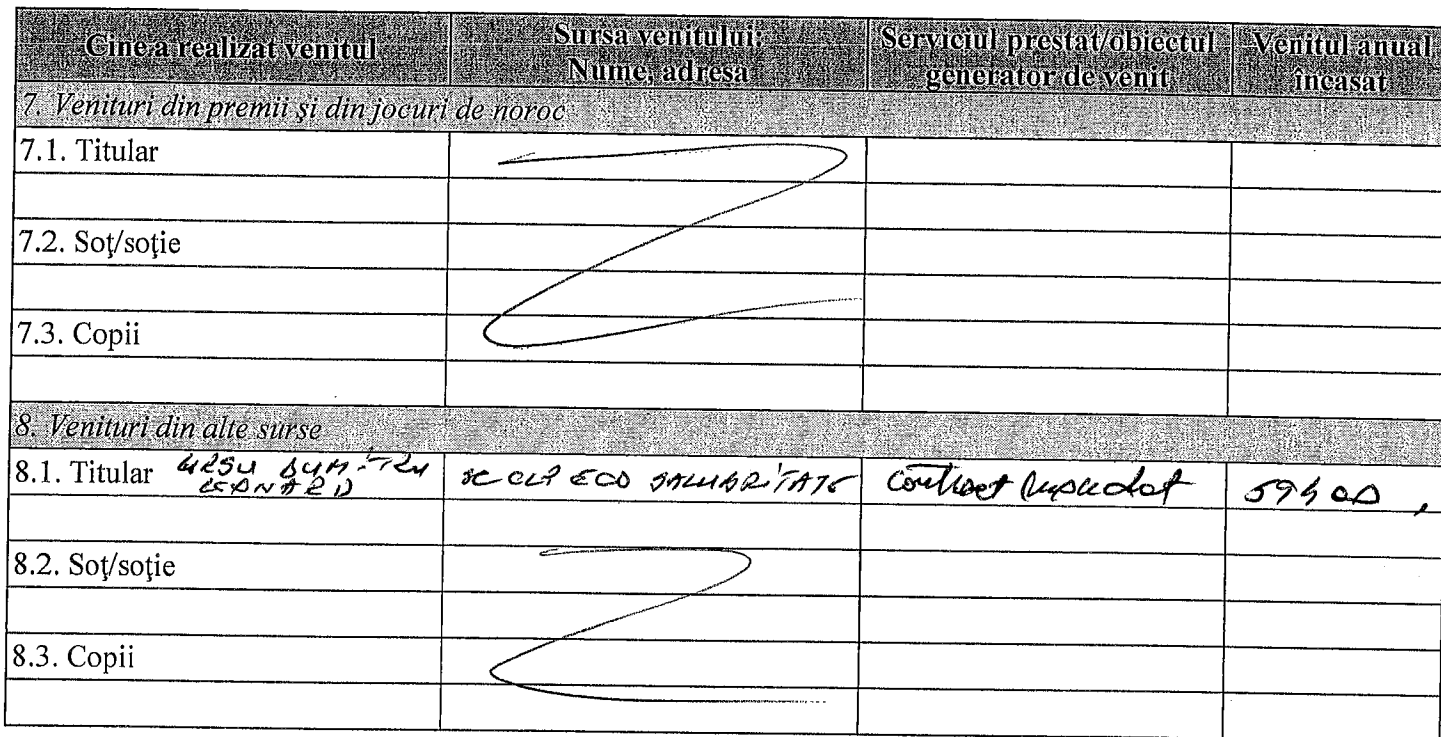 Cine a realizat venitul
Sursa venitului:
Nume, adresa
Serviciul prestat/obiectul
generator de venit
Venitul anual
încasat
7. Venituri din premii şi din jocuri de noroc
7.1. Titular
7.2. Soţ/soţie
7.3. Copii
8. Venituri din alte surse
8.1. Titular URSU DUMITRU
LEONARD
SC CLP ECO SALUBRITATE
Contract mandat
59400
8.2. Soţ/soţie
8.3. Copii